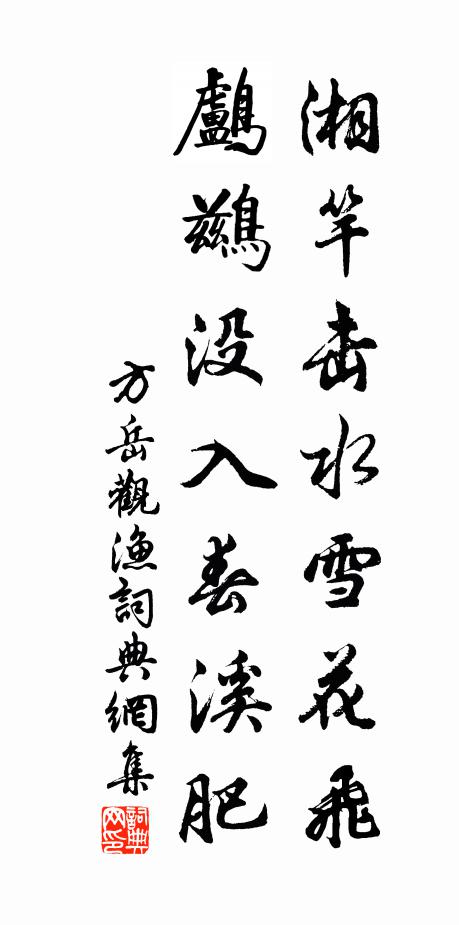 湘竿击水雪花飛
鸕鷀没入春溪肥
方岳觀漁詞典網集
詞典
网印